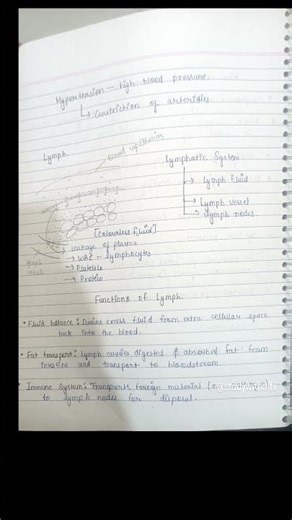 Hypertension – high blood pressure.
↳ constriction of arterioles
Lymph
Blood capillaries
Lymphatic System
→ Lymph fluid
→ Lymph vessel
→ Lymph nodes.
[colourless fluid]
leakage of plasma
→ WBC – lymphocytes
→ Platelets
→ Protein
Functions of Lymph.
• Fluid balance : excess fluid from extra cellular space
back into the blood.
• Fat transport : Lymph carries digested & absorbed fat from
and transport to bloodstream
• Immune System : Transports foreign material
to lymph nodes for disposal.